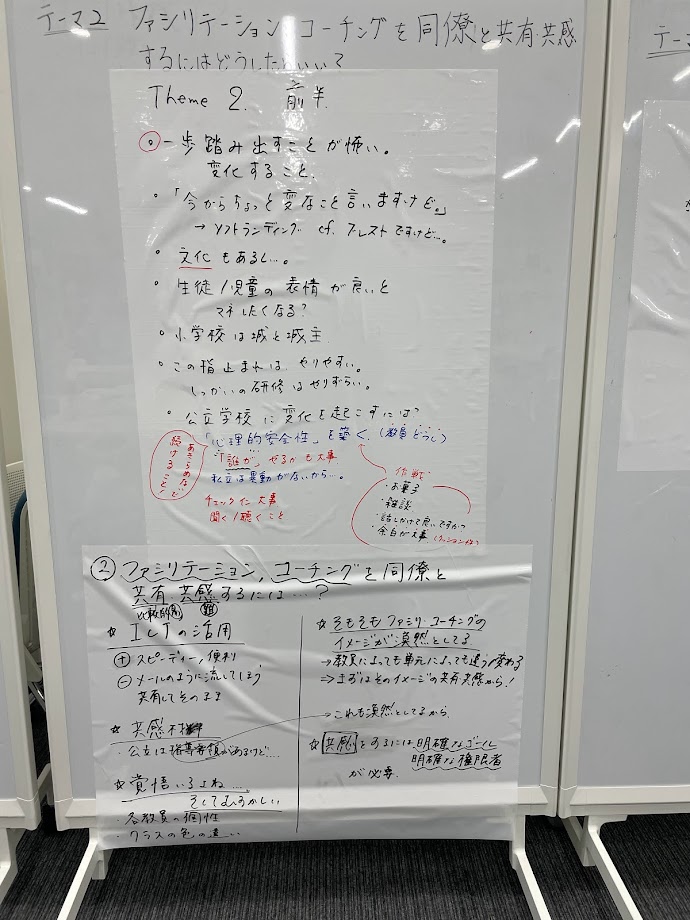 テーマ2 ファシリテーション、コーチングを同僚と共有・共感
するにはどうしたらいい?
Theme 2. 前半
・一歩踏み出すことが怖い。
変化すること。
・「今からちょっと変なこと言いますけど。」
→ソフトランディング cf. ブレストですけど…。
・文化もあるし…。
・生徒/児童の表情が良いと
マネしたくなる?
・小学校は城と城主
・この指止まれは、やりやすい。
しっかいの研修はやりずらい。
・公立学校に変化を起こすには?
「心理的安全性」を築く。(教員どうし)
「誰が」やるかも大事
私立は異動がないから…。
チェックイン大事
聞く/聴くこと
あきらめないで
続けること!
作戦
・お菓子
・雑談
・話しかけて良いですかっ
・余白が大事
② ファシリテーション、コーチングを同僚と
共有・共感するには…?
比較的易 難
☆ ICTの活用
⊕ スピーディー、便利
⊖ メールのように流してしまう
共有してそのまま
☆ 共感
・公立は指導要領があるけど…
☆ 覚悟いるよね…
そしてむずかしい
・各教員の個性
・クラスの色の違い
☆ そもそもファシリ・コーチングの
イメージが漠然としてる
→教員によっても単元によっても違う/変わる
⇒まずはそのイメージの共有共感から!
→これも漠然としてるから
☆ 共感をするには明確なゴール
明確な権限者
が必要。
テーマ